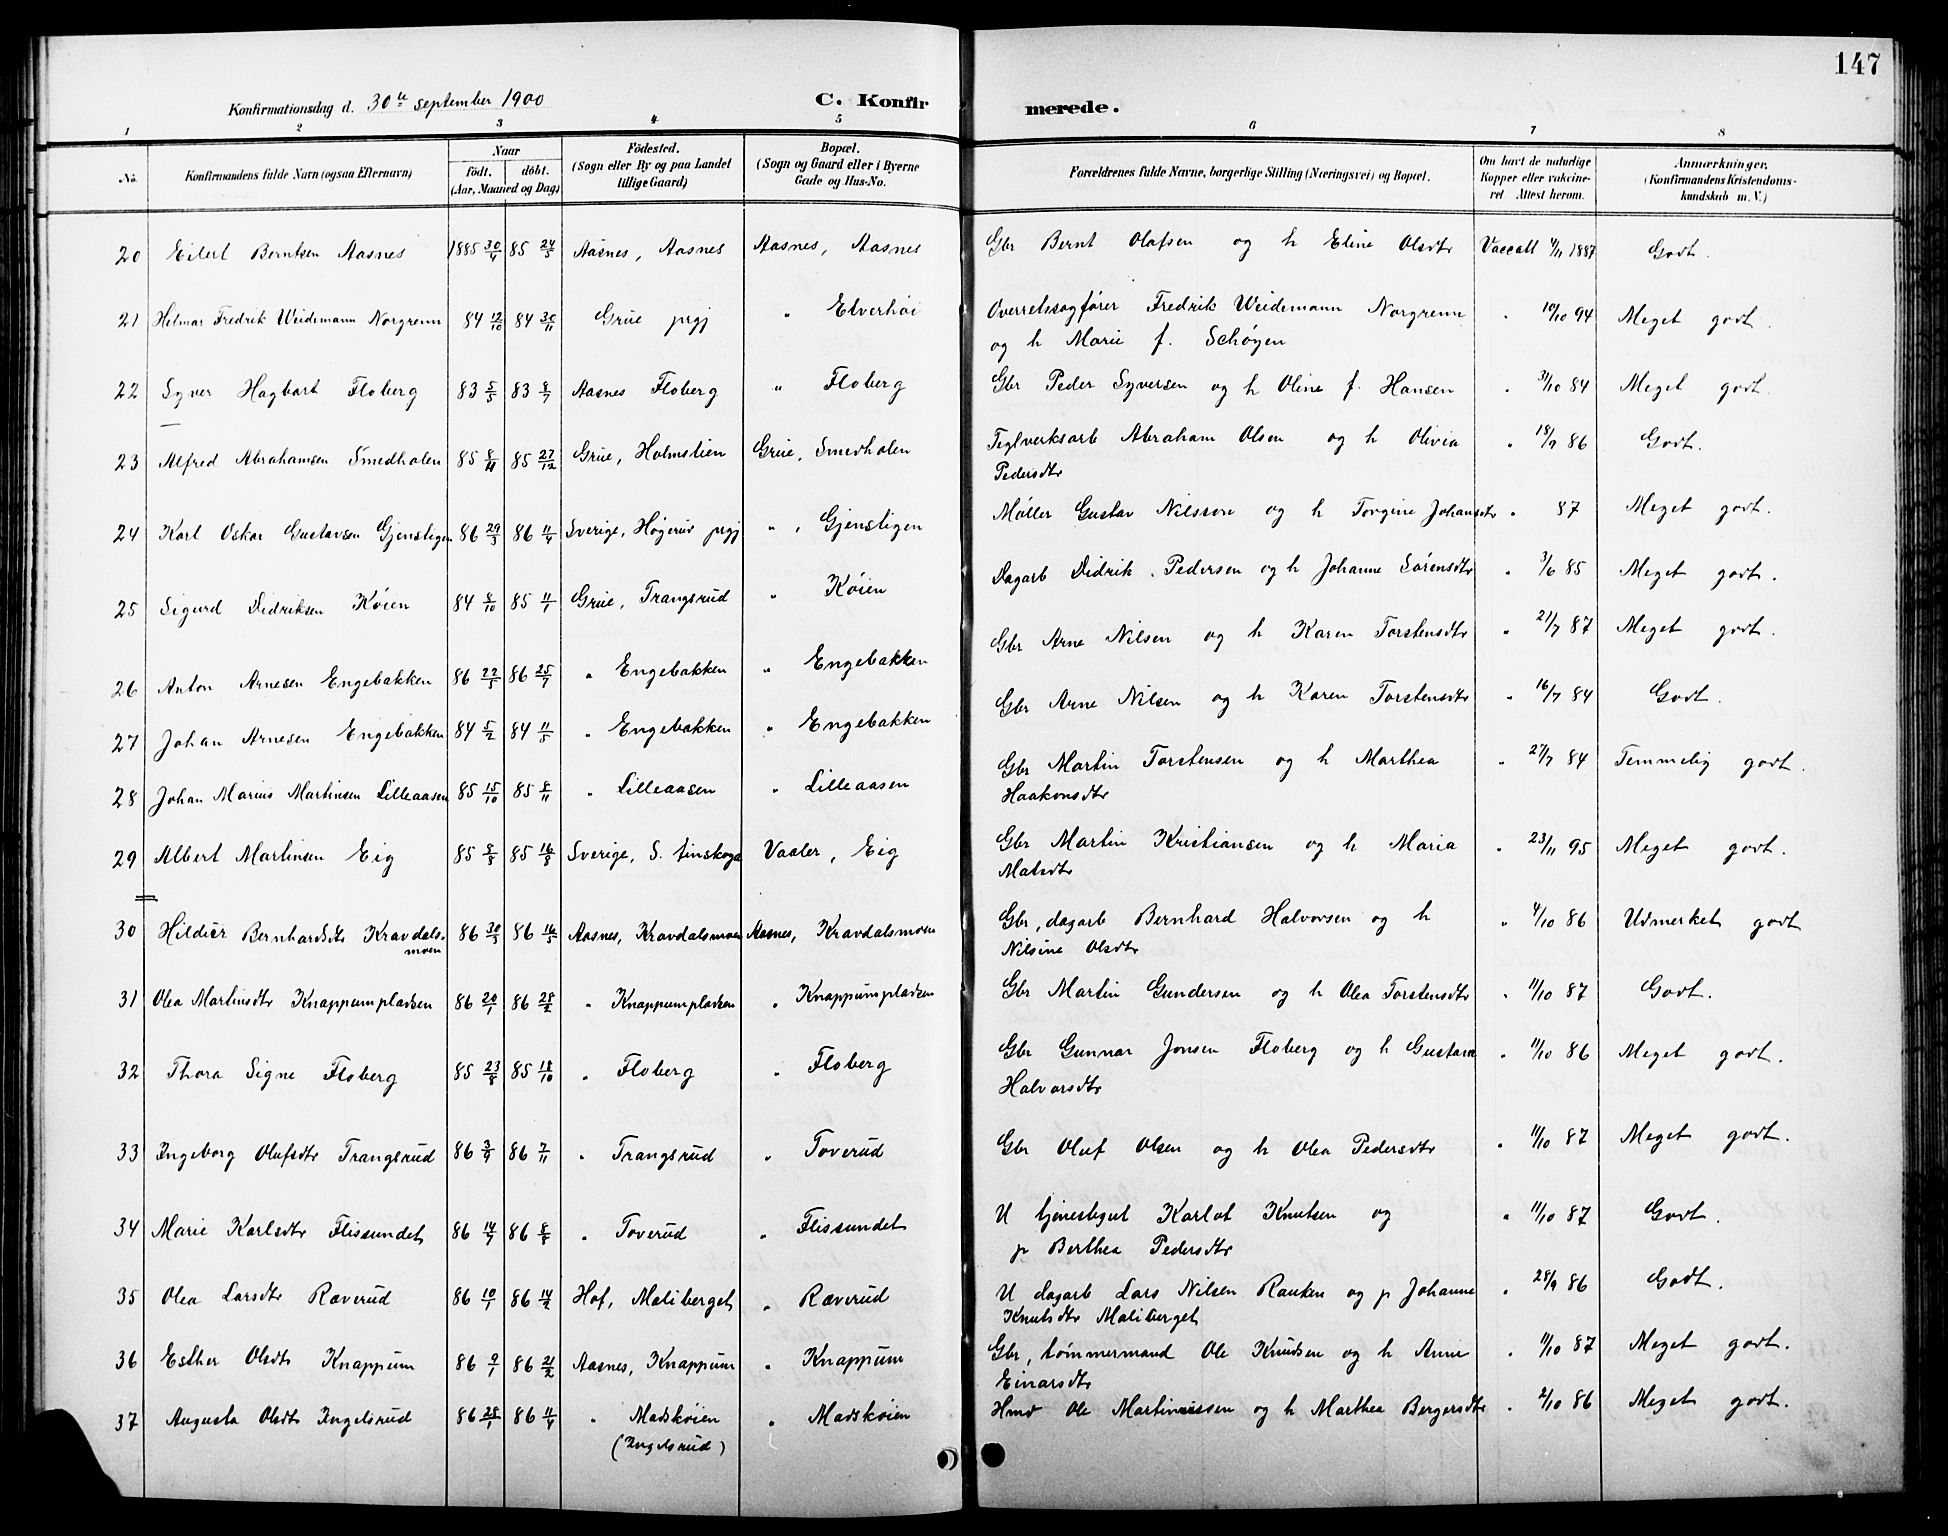 147
Konfirmationsdag d. 30te september 1900 C. Konfirmerede.
1 2 3 4 5 6 7 8
No. Konfirmandens fulde Navn (ogsaa Efternavn) Naar födt. döbt. (Aar, Maaned og Dag) Födested. (Sogn eller By og paa Landet tillige Gaard) Bopæl. (Sogn og Gaard eller i Byerne Gade og Hus-No. Forældrenes fulde Navne, borgerlige Stilling (Næringsvei) og Bopæl. Om havt de naturlige Kopper eller vakcineret Attest herom. Anmærkninger. (Konfirmandens Kristendomskundskab m. V.)
20 Eilert Berntsen Aasnes 1885 30/4 85 24/5 Aasnes, Aasnes Aasnes, Aasnes Gbr Bernt Olafsen og h Eline Olsdtr Vaccatt 4/11 1887 Godt.
21 Helmar Fredrik Weidemann Norgrenn 84 12/10 84 30/11 Grue prgj " Elverhøi Overretssagfører Fredrik Weidemann Norgrenn " 10/10 94 Meget godt.
og h Marie f. Schøyen
22 Syver Hagbart Floberg 83 5/5 83 8/7 Aasnes Floberg " Floberg Gbr Peder Syversen og h Oline f. Hansen " 31/10 84 Meget godt.
23 Alfred Abrahamsen Smedholen 85 8/11 85 27/12 Grue, Holmstien Grue, Smedholen Teglverksarb Abraham Olsen og h Olivia " 18/9 86 Godt.
Pedersdtr
24 Karl Oskar Gustavsen Gjenstigen 86 29/3 86 11/4 Sverige, Høgerud prgj " , Gjenstigen Møller Gustav Nilsson og h Torgine Johansdtr " 87 Meget godt.
25 Sigurd Didriksen Køien 84 8/10 85 11/1 Grue, Trangsrud " Køien Dagarb Didrik Pedersen og h Johanne Sørensdtr " 3/6 85 Meget godt.
26 Anton Arnesen Engebakken 86 22/5 86 25/7 " Engebakken " Engebakken Gbr Arne Nilsen og h Karen Torstensdtr " 21/7 87 Meget godt.
27 Johan Arnesen Engebakken 84 5/2 84 11/5 " Engebakken " Engebakken Gbr Arne Nilsen og h Karen Torstensdtr " 16/7 84 Godt.
28 Johan Marius Martinsen Lilleaasen 85 15/10 85 8/11 " Lilleaasen " Lilleaasen Gbr Martin Torstensen og h Marthea " 27/7 84 Temmelig godt.
Haakonsdtr
29 Albert Martinsen Eig 85 8/8 85 16/8 Sverige, S. finskoga Vaaler, Eig Gbr Martin Kristiansen og h Maria " 23/11 95 Meget godt.
Matsdtr
30 Hildur Bernhardsdtr Kravdalsmoen 86 30/3 86 16/5 Aasnes, Kravdalsmoen Aasnes, Kravdalsmoen Gbr, dagarb Bernhard Halvorsen og h " 4/10 86 Udmerket godt
Nilsine Olsdtr
31 Olea Martinsdtr Knappumpladsen 86 20/1 86 28/2 " Knappumpladsen " Knappumpladsen Gbr Martin Gundersen og h Olea Torstensdtr " 11/10 87 Godt.
32 Thora Signe Floberg 85 23/8 85 18/10 " Floberg " Floberg Gbr Gunnar Jonsen Floberg og h Gustava " 11/10 86 Meget godt.
Halvorsdtr
33 Ingeborg Olufsdtr Trangsrud 86 3/9 86 7/11 " Trangsrud " Toverud Gbr Oluf Olsen og h Olea Pedersdtr " 11/10 87 Meget godt.
34 Marie Karlsdtr Flissundet 86 14/7 86 8/8 " Toverud " Flissundet U tjenestegut Karlot Knutsen og " 11/10 87 Godt.
p Berthea Pedersdtr
35 Olea Larsdtr Ræverud 86 10/1 86 14/2 Hof, Maliberget " Ræverud U dagarb Lars Nilsen Rauken og p Johanne " 28/9 86 Godt.
Knutsdtr Maliberget
36 Esther Olsdtr Knappum 86 9/1 86 21/2 Aasnes, Knappum " Knappum Gbr, tømmermand Ole Knudsen og h Anne " 11/10 87 Meget godt.
Einarsdtr
37 Augusta Olsdtr Ingelsrud 86 28/1 86 11/4 " Madskøien " Madskøien Hmd Ole Martinussen og h Marthea Bergersdtr " 2/10 86 Meget godt.
(Ingelsrud)